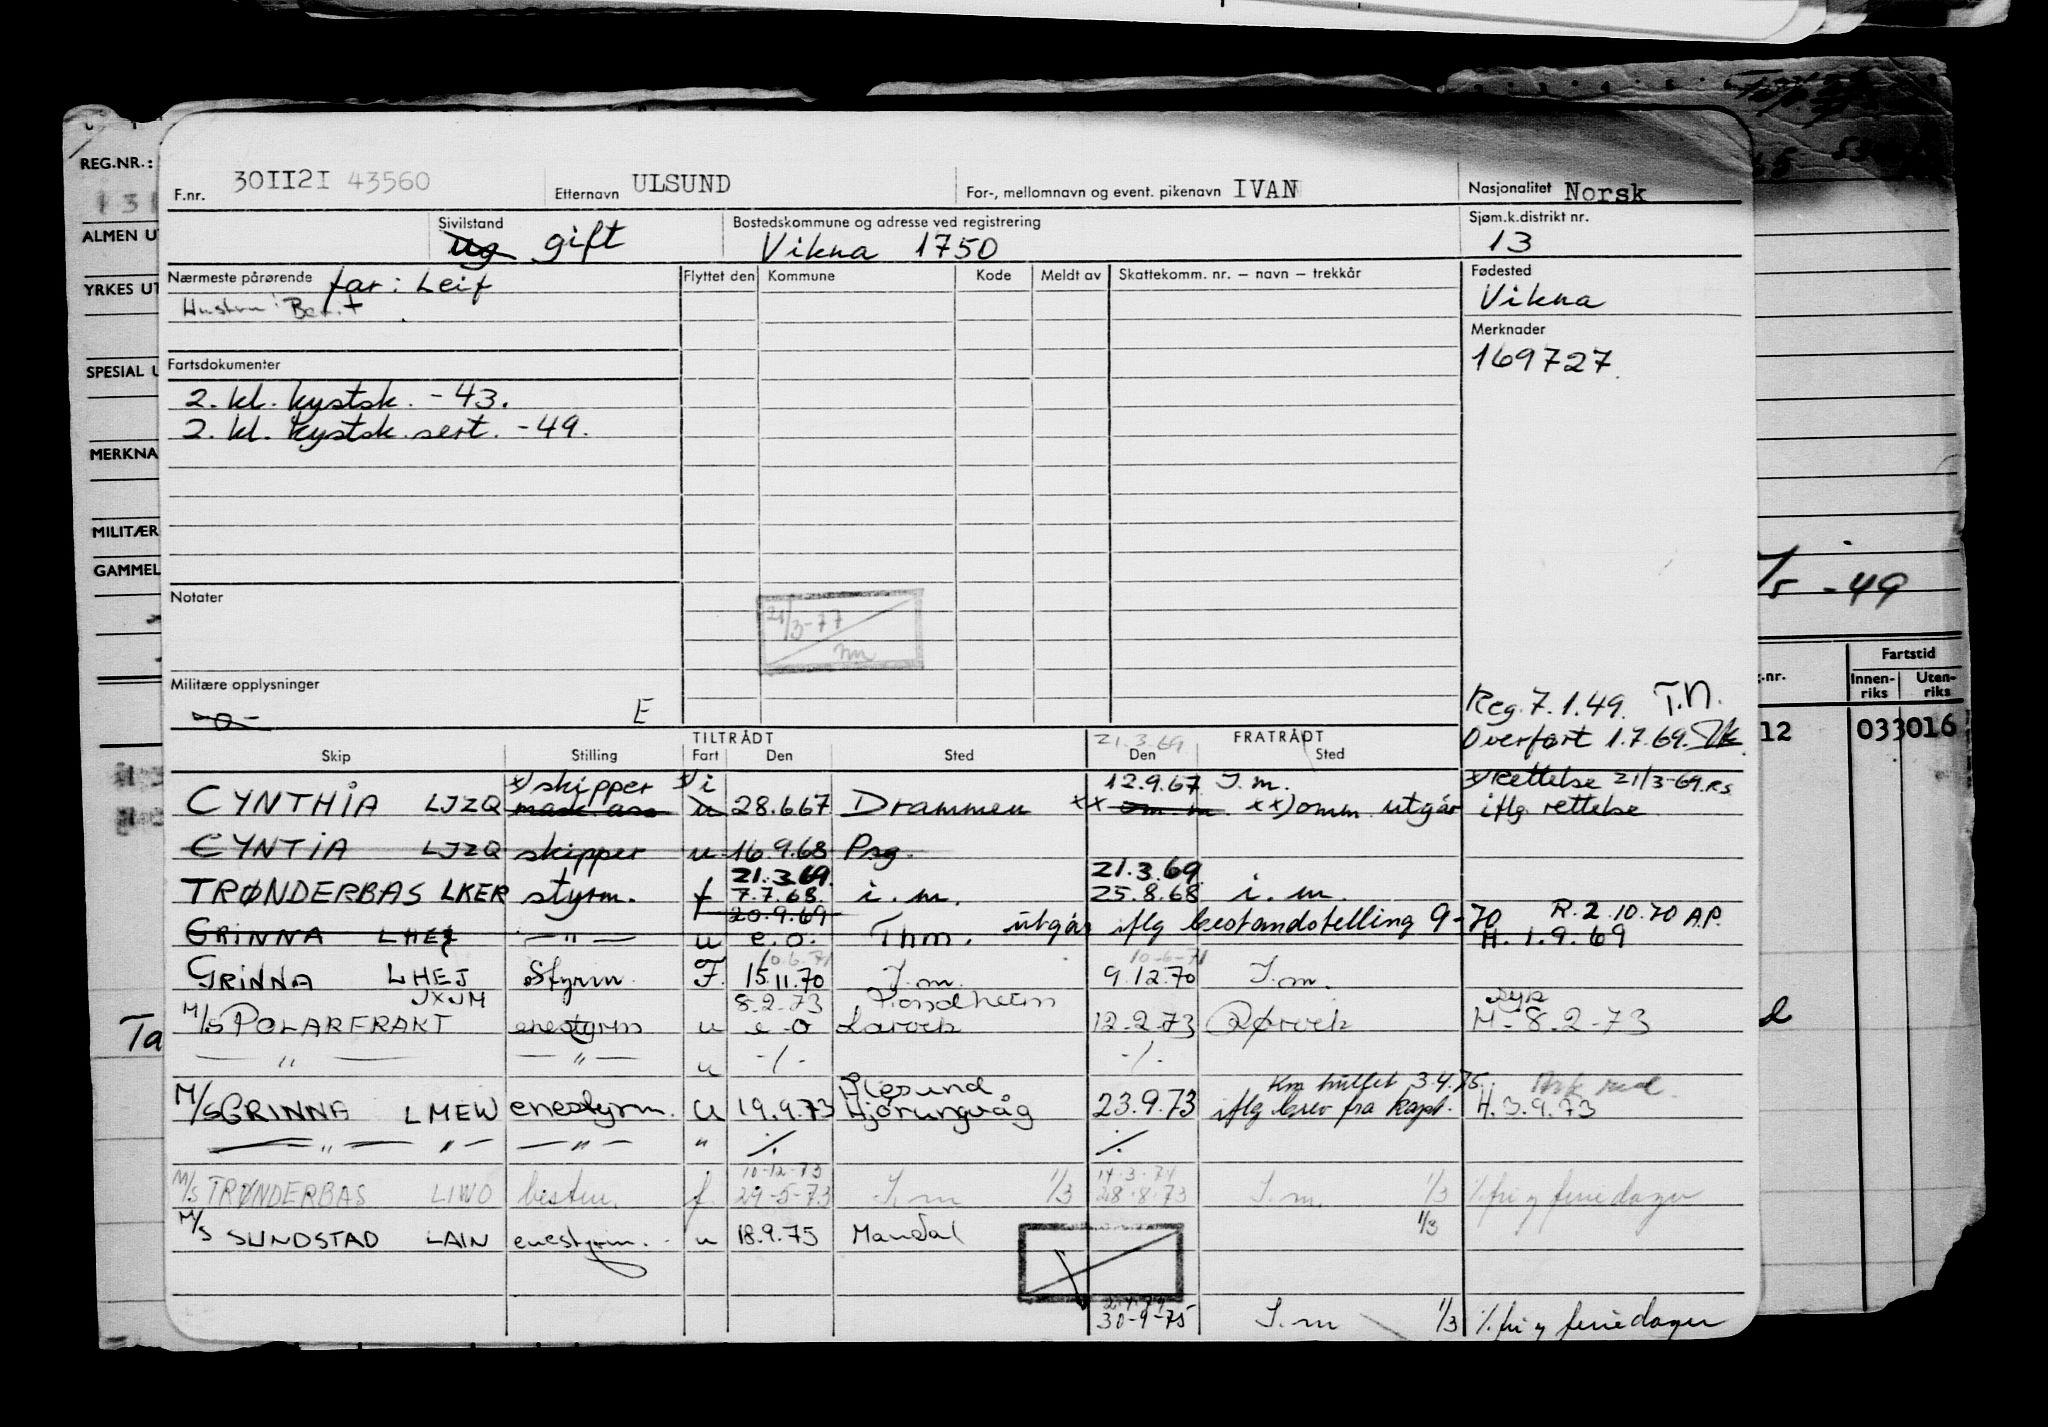 REG.NR.:
ALMEN U
YRKES UT
SPESIAL U
MERKNA
MILITÆR
GAMMEL
F.nr. 30II2I 43560 Etternavn ULSUND For-, mellomnavn og event. pikenavn IVAN Nasjonalitet Norsk
Sivilstand ug gift Bostedskommune og adresse ved registrering Vikna 1750 Sjøm.k.distrikt nr. 13
Nærmeste pårørende far: Leif Flyttet den Kommune Kode Meldt av Skattekomm. nr. – navn – trekkår Fødested Vikna
Hustru: Berit
Merknader
169727
Fartsdokumenter
2. kl. kystsk. -43.
2. kl. kystsk. sert. -49.
Notater
21/3-77
Militære opplysninger
-o- E
Reg. 7.1.49. T.N.
Overført 1.7.69.
/5 -49
Fartstid
Innen-riks Uten-riks
12 033016
TILTRÅDT 21.3.69 FRATRÅDT
Skip Stilling Fart Den Sted Den Sted
x) skipper x) i 12.9.67 I.m. x) Rettelse 21/3-69 R.S.
CYNTHIA LJZQ mask.ass u 28.6.67 Drammen xx om.m. xx) omm. utgår iflg rettelse
CYNTIA LJZQ skipper u 16.9.68 Psg.
21.3.69. 21.3.69
TRØNDERBAS LKER styrm. f 7.7.68. i.m. 25.8.68 i.m.
20.9.69 utgår iflg bestandstelling 9-70 R. 2.10.70 A.P.
GRINNA LHEJ -"- u e.o. Thm. H. 1.9.69
10.6.71 10-6-71
GRINNA LHEJ Styrm. F. 15.11.70 I.m. 9.12.70 I.m.
JXJM 8.2.73 Trondheim
M/S POLARFRAKT enestyrm u e-o Larvik 12.2.73 Rørvik H-8.2-73
-"- -"- u -/- -/-
Ålesund 3.4.75.
M/S GRINNA LMEW enestyrm. u 19.9.73 Hjørungvåg 23.9.73 iflg brev fra Kapt. H.3.9.73
-"- -"- -"- " ./. ./.
10-12-73 14.3.74
M/S TRØNDERBAS LIWO bestm. f. 29-5-73 I.m 1/3 28.8.73 I.m. 1/3 ./. fri og feriedager
1/3
M/S SUNDSTAD LAIN enestyrm. u 18.9.75 Mandal
30-9-75 I.m 1/3 ./. fri og feriedager